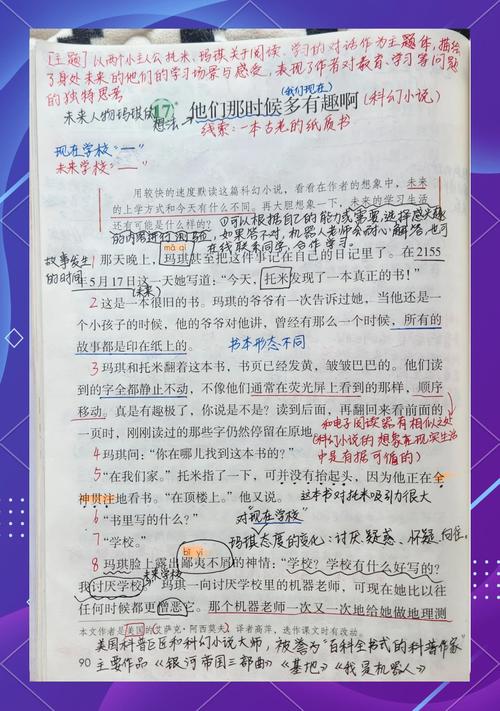 [主题]以两个小主人公托米、玛琪关于阅读、学习的对话作为主题体,描绘
了身处未来的他们的学习场景与感受,表现了作者对教育、学习等问题
的独特思考
(我们现在)
未来人物玛琪的想法→
17* 他们那时候多有趣啊(科幻小说)
线索:一本古老的纸质书
现在学校"—"
未来学校"—"
用较快的速度默读这篇科幻小说,看看在作者的想象中,未来
的上学方式和今天有什么不同。再大胆想象一下,未来的学习生活
还有可能是什么样的?
①可以根据自己的能力或需要选择感兴趣
的内容进行测验,如果答不对,机器老师会耐心解答,也可
在线联系同学,合作学习。
mǎ qí
那天晚上,玛琪甚至把这件事记在自己的日记里了。在2155
故事发生
的时间
年5月17日这一天她写道:"今天,托米发现了一本真正的书!"
(未来)
2 这是一本很旧的书。玛琪的爷爷有一次告诉过她,当他还是一
个小孩子的时候,他的爷爷对他讲,曾经有那么一个时候,所有的
故事都是印在纸上的。
书本形态不同
3 玛琪和托米翻着这本书,书页已经发黄,皱皱巴巴的。他们读
到的字全都静止不动,不像他们通常在荧光屏上看到的那样,顺序
移动。真是有趣极了,你说是不是?读到后面,再翻回来看前面的
一页时,刚刚读过的那些字仍然停留在原地。
和电子阅读器有相似之处
(科幻小说的想象在现实生活
中是有据可循的)
4 玛琪问:"你在哪儿找到这本书的?"
5 "在我们家。"托米指了一下,可并没有抬起头,因为他正在全
神贯注地看书。"在顶楼上。"他又说。
这本书对托米吸引力很大
6 "书里写的什么?"
对"现在学校"
7 "学校。"
玛琪态度的变化:讨厌、疑惑、怀疑、向往。
bǐ yí
8 玛琪脸上露出鄙夷不屑的神情:"学校?学校有什么好写的?
未来学校
我讨厌学校。"玛琪一向讨厌学校里的机器老师,可现在她比以往
任何时候都更憎恶它。那个机器老师一次又一次地给她做地理测
本文作者是美国的艾萨克·阿西莫夫,译者高萍,选作课文时有改动。
美国科普巨匠和科幻小说大师,被誉为"百科全书式的科普作家"
90 主要作品《银河帝国三部曲》《基地》《我是机器人》